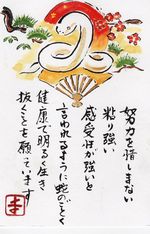 努力を惜しまない
粘り強い
感受性が強いと
言われるように蛇のごとく
健康で明るく生き
抜くことを願っています